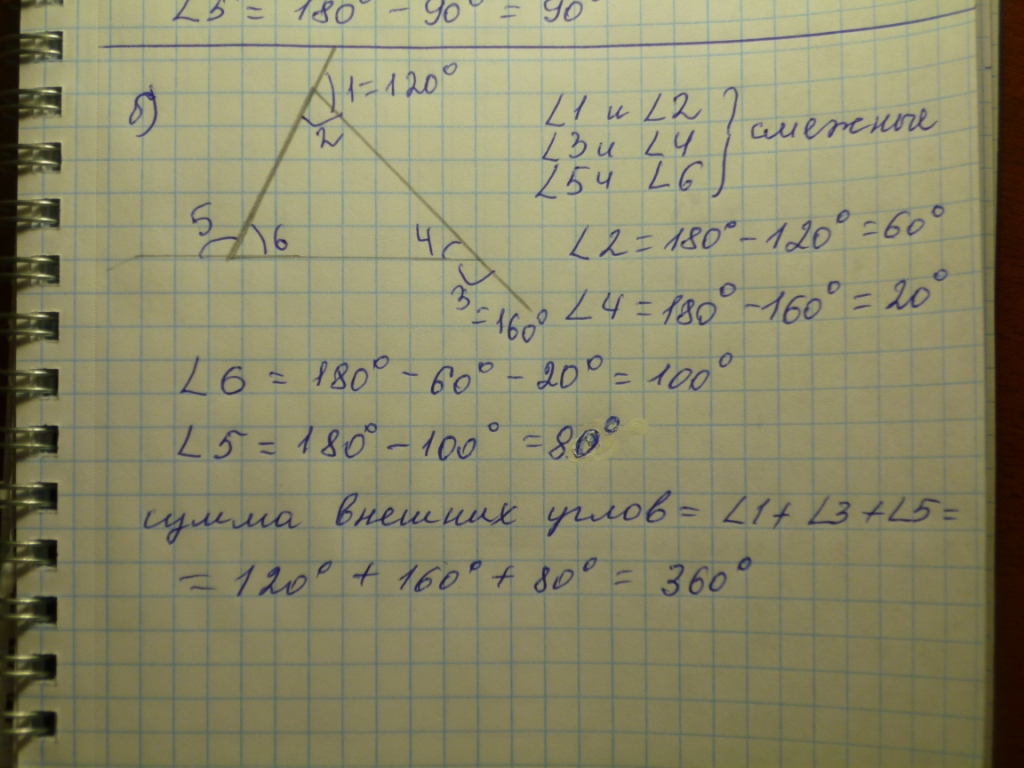 ∠5 = 180° - 90° = 90°
б)
1 = 120°
2
5
6
4
3 = 160°
∠1 и ∠2
∠3 и ∠4
∠5 и ∠6
смежные
∠2 = 180° - 120° = 60°
∠4 = 180° - 160° = 20°
∠6 = 180° - 60° - 20° = 100°
∠5 = 180° - 100° = 80°
сумма внешних углов = ∠1 + ∠3 + ∠5 =
= 120° + 160° + 80° = 360°